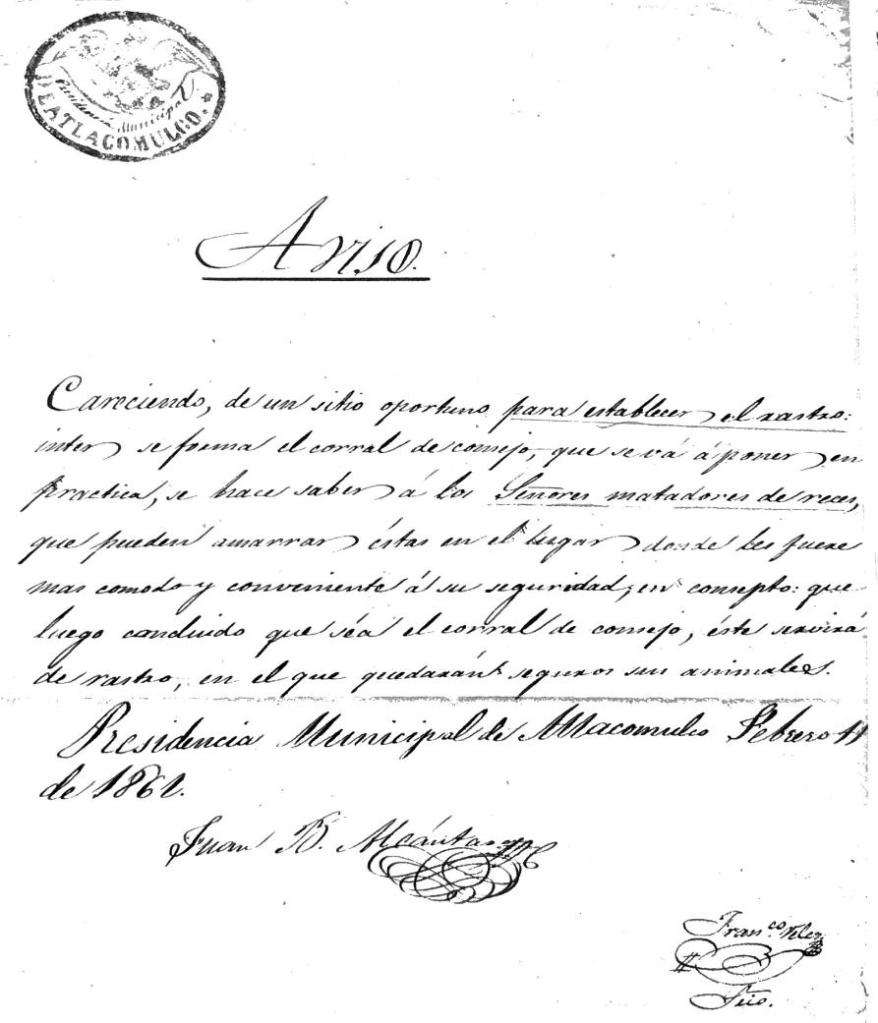 Presidencia Municipal
DE ATLACOMULCO.
Aviso.
Careciendo, de un sitio oportuno para establecer el rastro:
inter se forma el corral de consejo, que se vá á poner en
practica, se hace saber á los Señores matadores de reces,
que pueden amarrar éstas en el lugar donde les fuere
mas comodo y conveniente á su seguridad, en consepto: que
luego concluido que séa el corral de consejo, éste servirá
de rastro, en el que quedarán seguros sus animales.
Presidencia Municipal de Atlacomulco Febrero 11
de 1861.
Juan B. Alcántara
Franco. Velez
Srio.